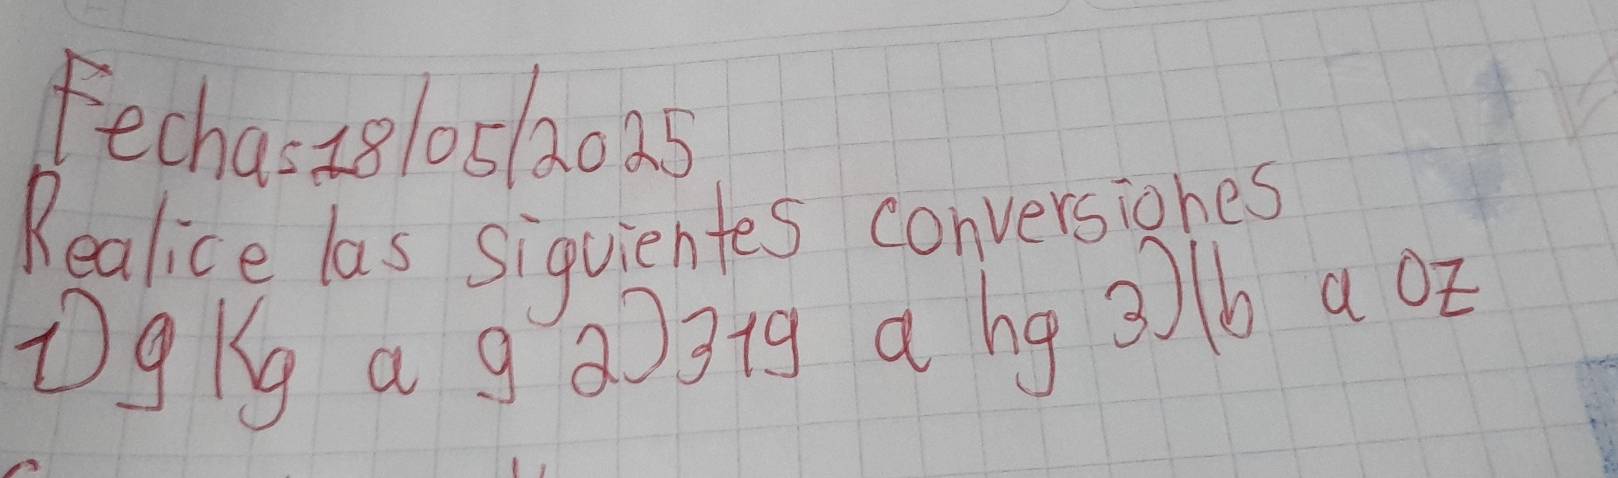 Fecha: 18/05/2025
Realice las siguientes conversiones
1) 9 Kg a g 2) 31g a hg 3) lb a oz